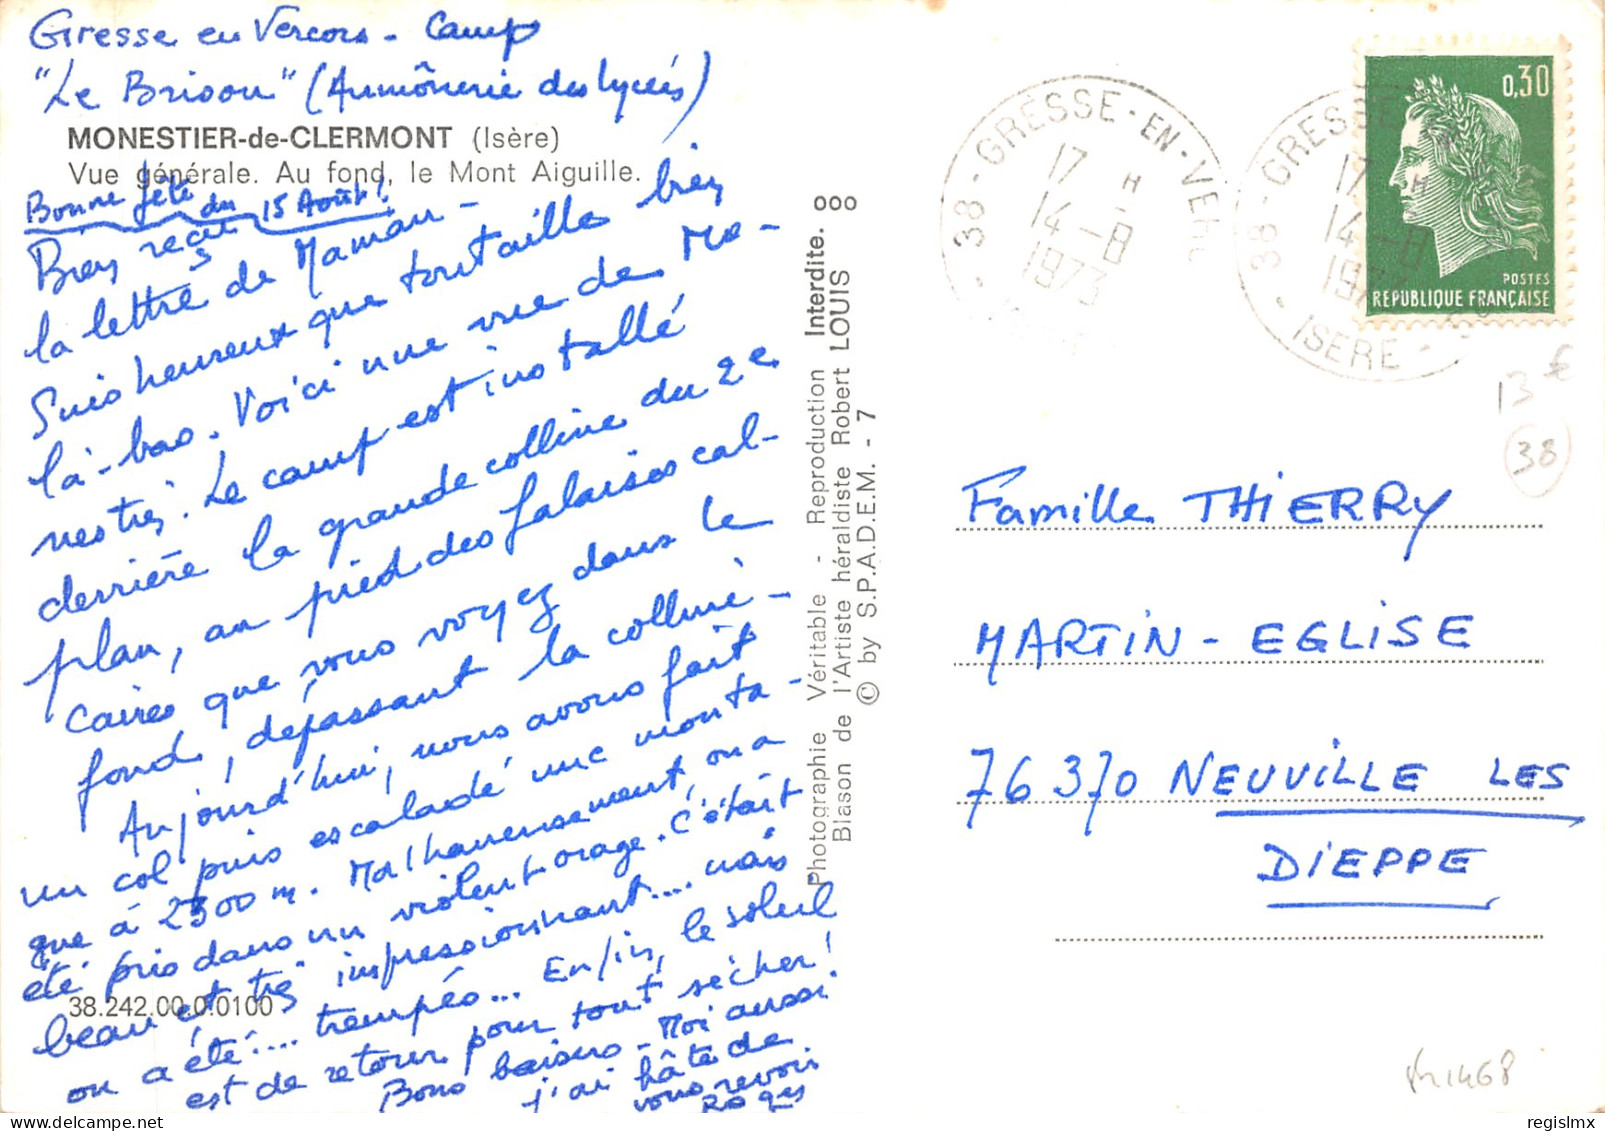 Gresse en Vercors - Camp
"Le Brisou" (Aumônerie des lycées)
MONESTIER-de-CLERMONT (Isère)
Vue générale. Au fond, le Mont Aiguille.
Bonne fête du 15 Août !
Bien reçu
la lettre de Maman -
Suis heureux que tout aille bien
là-bas. Voici une vue de Mo-
nestier. Le camp est installé
derrière la grande colline du 2e
plan, au pied des falaises cal-
caires que vous voyez dans le
fond, dépassant la colline -
Aujourd'hui, nous avons fait
un col puis escaladé une monta-
gne à 2300 m. Malheureusement, on a
été pris dans un violent orage. C'était
beau et très impressionnant... mais
on a été .... trempés... Enfin, le soleil
est de retour pour tout sécher !
Bons baisers - Moi aussi
j'ai hâte de
vous revoir
38.242.00.0.0100
Photographie Véritable - Reproduction Interdite.
Blason de l'Artiste héraldiste Robert LOUIS
© by S.P.A.D.E.M. - 7
38 - GRESSE-EN-VER
17 H
14-8
1973
38 - GRESSE
17 H
14-8
197
- ISERE -
0,30
POSTES
REPUBLIQUE FRANÇAISE
13 €
38
Famille THIERRY
MARTIN - EGLISE
76370 NEUVILLE LES
DIEPPE
regislmx